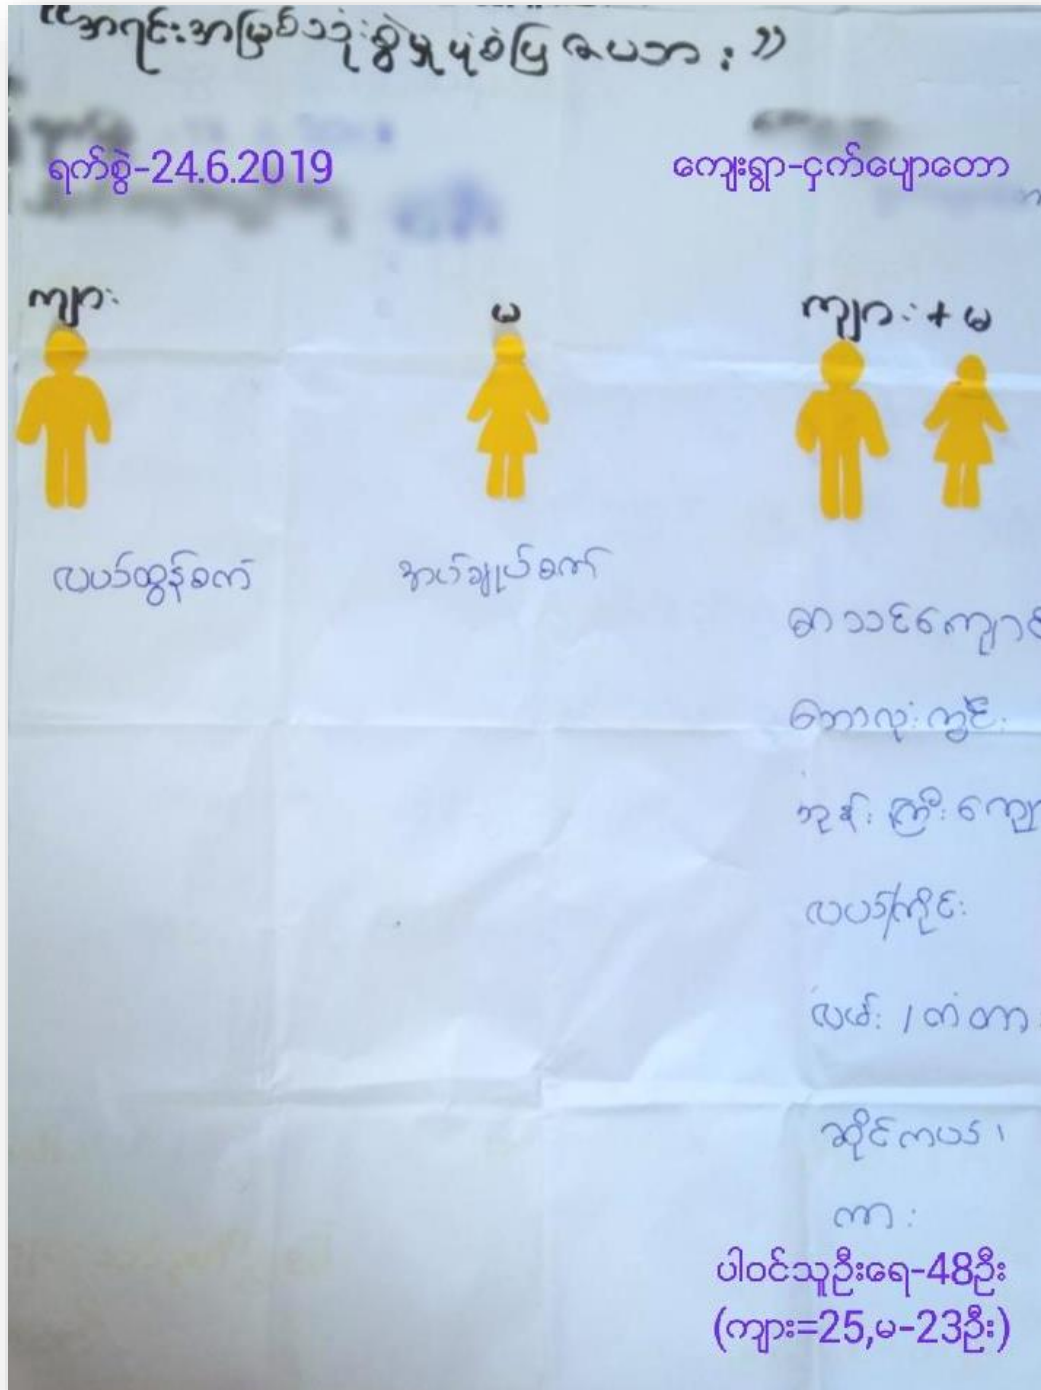 “အရင်းအမြစ်သုံးစွဲမှုပုံစံပြဇယား”
ရက်စွဲ-24.6.2019
ကျေးရွာ-ငှက်ပျောတော
ကျား
မ
ကျား+မ
လယ်ထွန်စက်
အပ်ချုပ်စက်
စာသင်ကျောင်
ဘောလုံးကွင်း
ဘုန်းကြီးကျေ
လယ်/ကိုင်း
လမ်း/တံတာ
ဆိုင်ကယ်၊
ကား
ပါဝင်သူဦးရေ-48ဦး
(ကျား=25,မ-23ဦး)